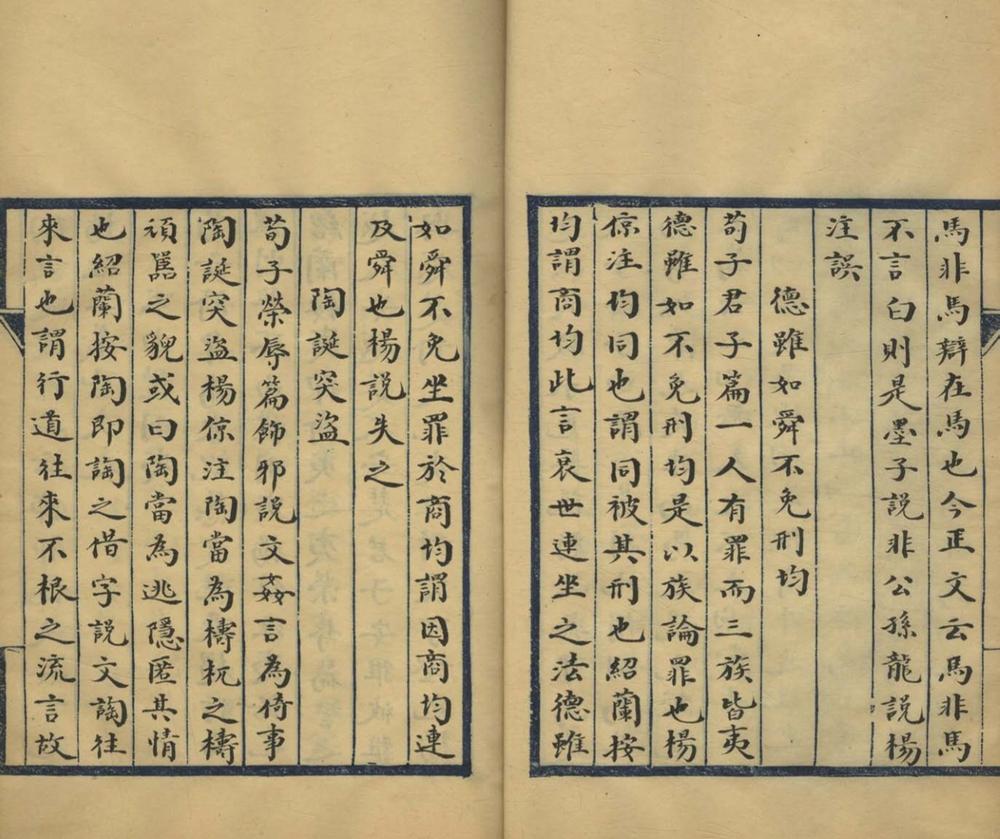 馬非馬辯在馬也今正文云馬非馬
不言白則是墨子說非公孫龍說楊
注誤
德雖如舜不免刑均
荀子君子篇一人有罪而三族皆夷
德雖如不免刑均是以族論罪也楊
倞注均同也謂同被其刑也紹蘭按
均謂商均此言衰世連坐之法德雖
如舜不免坐罪於商均謂因商均連
及舜也楊說失之
陶誕突盜
荀子榮辱篇飾邪說文姦言為倚事
陶誕突盜楊倞注陶當為檮杌之檮
頑嚚之貌或曰陶當為逃隱匿其情
也紹蘭按陶即䛬之借字說文䛬往
來言也謂行道往來不根之流言故